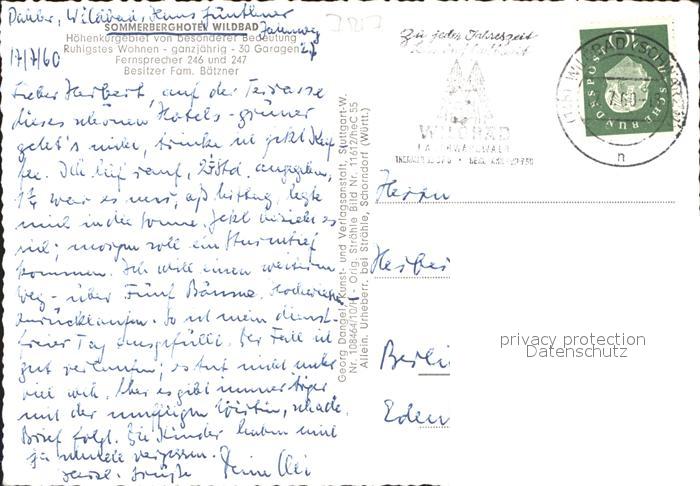 Wildbad, Hans
SOMMERBERGHOTEL WILDBAD
Höhenkurgebiet von besonderer Bedeutung
Ruhigstes Wohnen - ganzjährig - 30 Garagen
Fernsprecher 246 und 247
Besitzer Fam. Bätzner
17/7/60
Lieber Herbert, auf der Terrasse
dieses schönen Hotels - grüner
geht's nicht, trinke ich jetzt Kaf
fee. Ich lief rauf, 2 Std. angegeben,
war es nur, aß mittag, legte
mich in die Sonne. Jetzt bezieht es
sich; morgen soll ein Sturmtief
kommen. Ich will einen weiteren
Weg - über Fünf Bäume,
zurücklaufen. So ist mein dienst-
freier Tag ausgefüllt. Der Fall ist
gut verlaufen; es tut nicht mehr
viel weh. Aber es gibt immer Ärger
mit der schade.
Brief folgt. Die Kinder haben mich
ja nicht vergessen.
Herzl. Grüße Deine
Georg Dangel, Kunst- und Verlagsanstalt, Stuttgart-W.
Nr. 108464/10/H - Orig. Strähle Bild Nr. 11612/heC 55
Allein. Urheberr. bei Strähle, Schorndorf (Württ.)
Zu jeder Jahreszeit
WILDBAD
IM SCHWARZWALD
DEUTSCHE BUNDESPOST
10
WILDBAD (SCHWARZW)
n
Herrn
Berli
Eden
privacy protection
Datenschutz